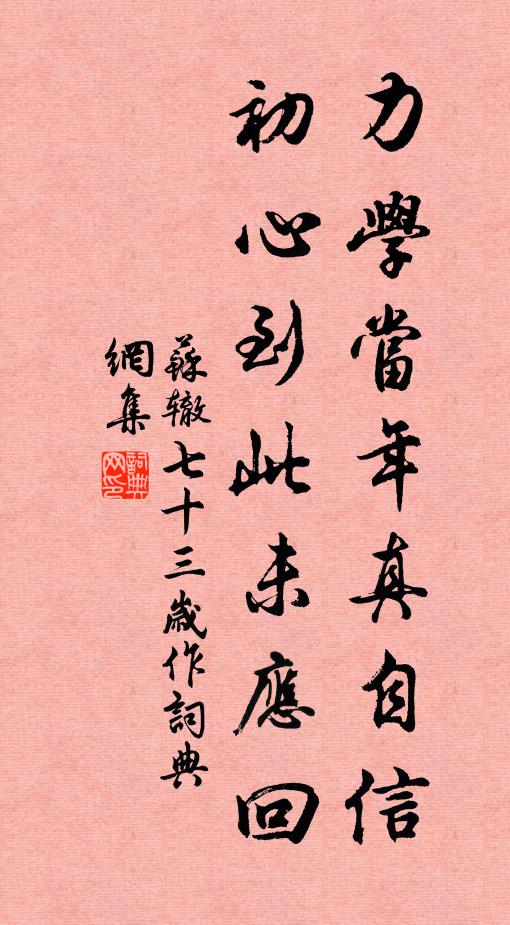 力學當年真自信
初心到此未應回
蘇辙七十三歲作詞典
網集
詞典
网印